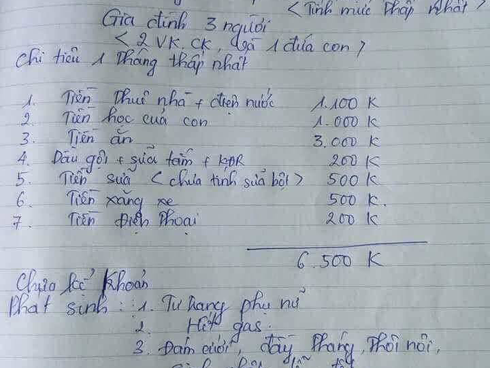 < Tính mức Thấp Nhất >
Gia đình 3 người
< 2 VK, CK, và 1 đứa con >
Chi tiêu 1 Tháng thấp nhất
1. Tiền Thuê nhà + điện nước 1.100 K
2 Tiền học của con 1.000 K
3. Tiền ăn 3.000 K
4. Dầu gội + sữa tắm + KĐR 200 K
5 Tiền sữa < chưa tính sữa bột > 500 K
6. Tiền xăng xe 500 K.
7. Tiền Điện Thoại 200 K
6.500 K
Chưa kể Khoản
Phát sinh : 1. Tư trang phụ nữ
2. Hết gas.
3. Đám cưới, đầy Tháng, Thôi nôi,